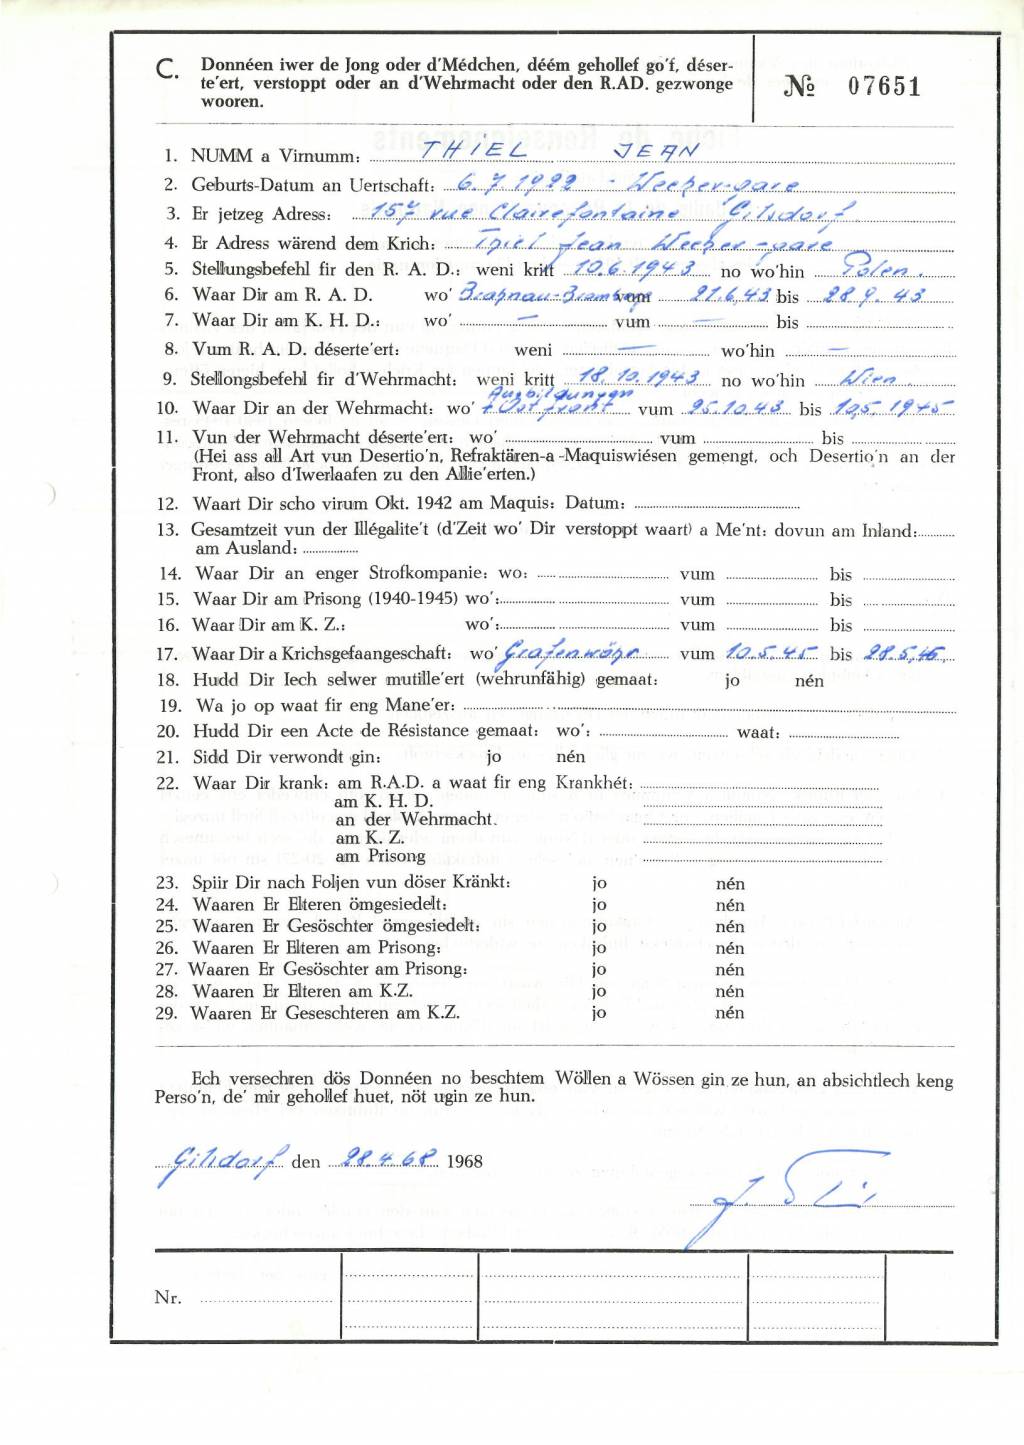 C. Donnéen iwer de Jong oder d'Médchen, déém gehollef go'f, déser-
te'ert, verstoppt oder an d'Wehrmacht oder den R.AD. gezwonge
wooren.
№ 07651
1. NUMM a Virnumm: THIEL JEAN
2. Geburts-Datum an Uertschaft: 6.7.1922 - Wecker-gare
3. Er jetzeg Adress: 157 rue Clairefontaine Gilsdorf
4. Er Adress wärend dem Krich: Thiel Jean Wecker-gare
5. Stellungsbefehl fir den R. A. D.: weni kritt 10.6.1943 no wo'hin Polen.
6. Waar Dir am R. A. D. wo' vum 21.6.43 bis 28.9.43
7. Waar Dir am K. H. D.: wo' — vum — bis
8. Vum R. A. D. déserte'ert: weni — wo'hin —
9. Stellongsbefehl fir d'Wehrmacht: weni kritt 18.10.1943 no wo'hin Wien.
10. Waar Dir an der Wehrmacht: wo' Ausbildungen + Ostfront vum 25.10.43 bis 10.5.1945
11. Vun der Wehrmacht déserte'ert: wo' vum bis
(Hei ass all Art vun Desertio'n, Refraktären-a-Maquiswiésen gemengt, och Desertio'n an der
Front, also d'Iwerlaafen zu den Allie'erten.)
12. Waart Dir scho virum Okt. 1942 am Maquis: Datum:
13. Gesamtzeit vun der Illégalite't (d'Zeit wo' Dir verstoppt waart) a Me'nt: dovun am Inland:
am Ausland:
14. Waar Dir an enger Strofkompanie: wo: vum bis
15. Waar Dir am Prisong (1940-1945) wo': vum bis
16. Waar Dir am K. Z.: wo': vum bis
17. Waar Dir a Krichsgefaangeschaft: wo' Grafenwöhr vum 10.5.45 bis 28.5.46
18. Hudd Dir Iech selwer mutille'ert (wehrunfähig) gemaat: jo nén
19. Wa jo op waat fir eng Mane'er:
20. Hudd Dir een Acte de Résistance gemaat: wo': waat:
21. Sidd Dir verwondt gin: jo nén
22. Waar Dir krank: am R.A.D. a waat fir eng Krankhét:
am K. H. D.
an der Wehrmacht.
am K. Z.
am Prisong
23. Spiir Dir nach Foljen vun döser Kränkt: jo nén
24. Waaren Er Elteren ömgesiedelt: jo nén
25. Waaren Er Gesöschter ömgesiedelt: jo nén
26. Waaren Er Elteren am Prisong: jo nén
27. Waaren Er Gesöschter am Prisong: jo nén
28. Waaren Er Elteren am K.Z. jo nén
29. Waaren Er Geseschteren am K.Z. jo nén
Ech versechren dös Donnéen no beschtem Wöllen a Wössen gin ze hun, an absichtlech keng
Perso'n, de' mir gehollef huet, nöt ugin ze hun.
Gilsdorf den 28.4.68 1968
Nr.